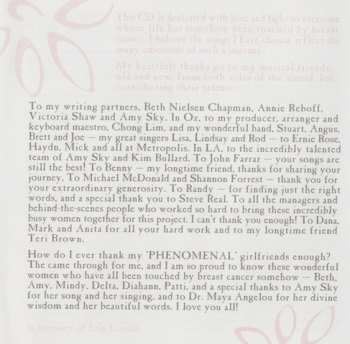 This CD is dedicated with love and light to everyone
whose life has somehow been touched by breast
To my writing partners, Beth Nielsen Chapman, Annie Reboff,
Victoria Shaw and Amy Sky. In Oz, to my producer, arranger and
keyboard maestro, Chong Lim, and my wonderful band, Stuart, Angus,
Brett and Joe — my great singers Lisa, Lindsay and Rod — to Ernie Rose,
Haydn, Mick and all at Metropolis. In LA, to the incredibly talented
team of Amy Sky and Kim Bullard. To John Farrar — your songs are
still the best! To Benny — my longtime friend, thanks for sharing your
journey. To Michael McDonald and Shannon Forrest — thank you for
your extraordinary generosity. To Randy — for finding just the right
words, and a special thank you to Steve Real. To all the managers and
behind-the-scenes people who worked so hard to bring these incredibly
busy women together for this project. I can't thank you enough! To Dana,
Mark and Anita for all your hard work and to my longtime friend
Teri Brown.
How do I ever thank my 'PHENOMENAL' girlfriends enough?
The came through for me, and I am so proud to know these wonderful
women who have all been touched by breast cancer somehow — Beth,
Amy, Mindy, Delta, Diahann, Patti, and a special thanks to Amy Sky
for her song and her singing, and to Dr. Maya Angelou for her divine
wisdom and her beautiful words. I love you all!